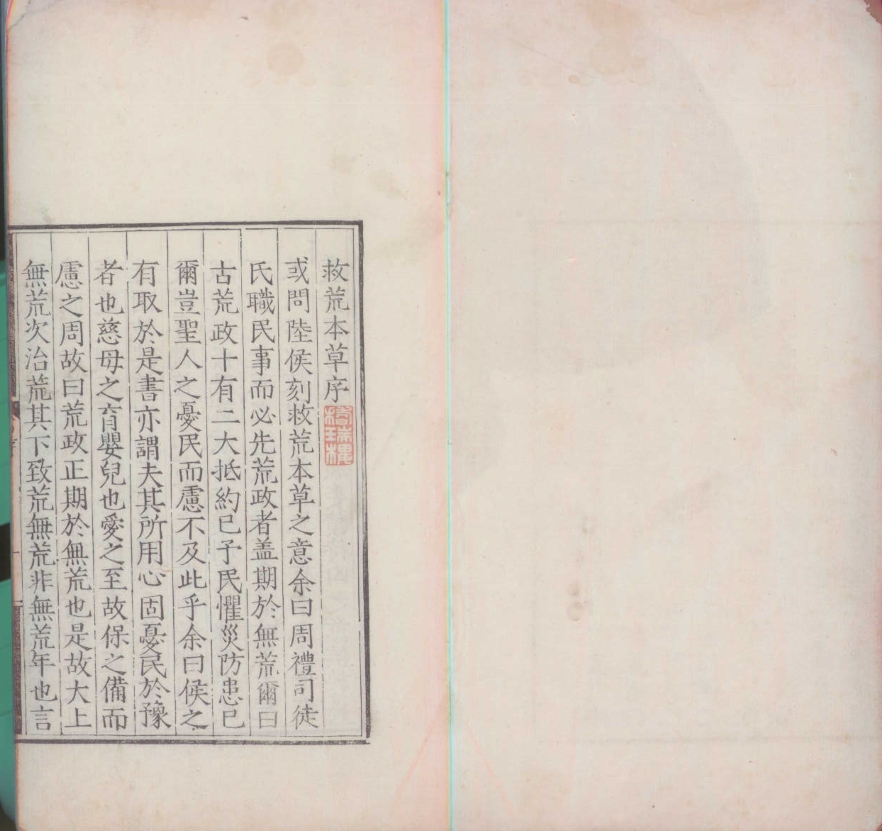 救荒本草序
或問陸侯刻救荒本草之意余曰周禮司徒
氏職民事而必先荒政者盖期於無荒爾曰
古荒政十有二大抵約已予民懼災防患已
爾豈聖人之憂民而慮不及此乎余曰侯之
有取於是書亦謂夫其所用心固憂民於豫
者也慈母之育嬰兒也愛之至故保之備而
慮之周故曰荒政正期於無荒也是故大上
無荒次治荒其下致荒無荒非無荒年也言